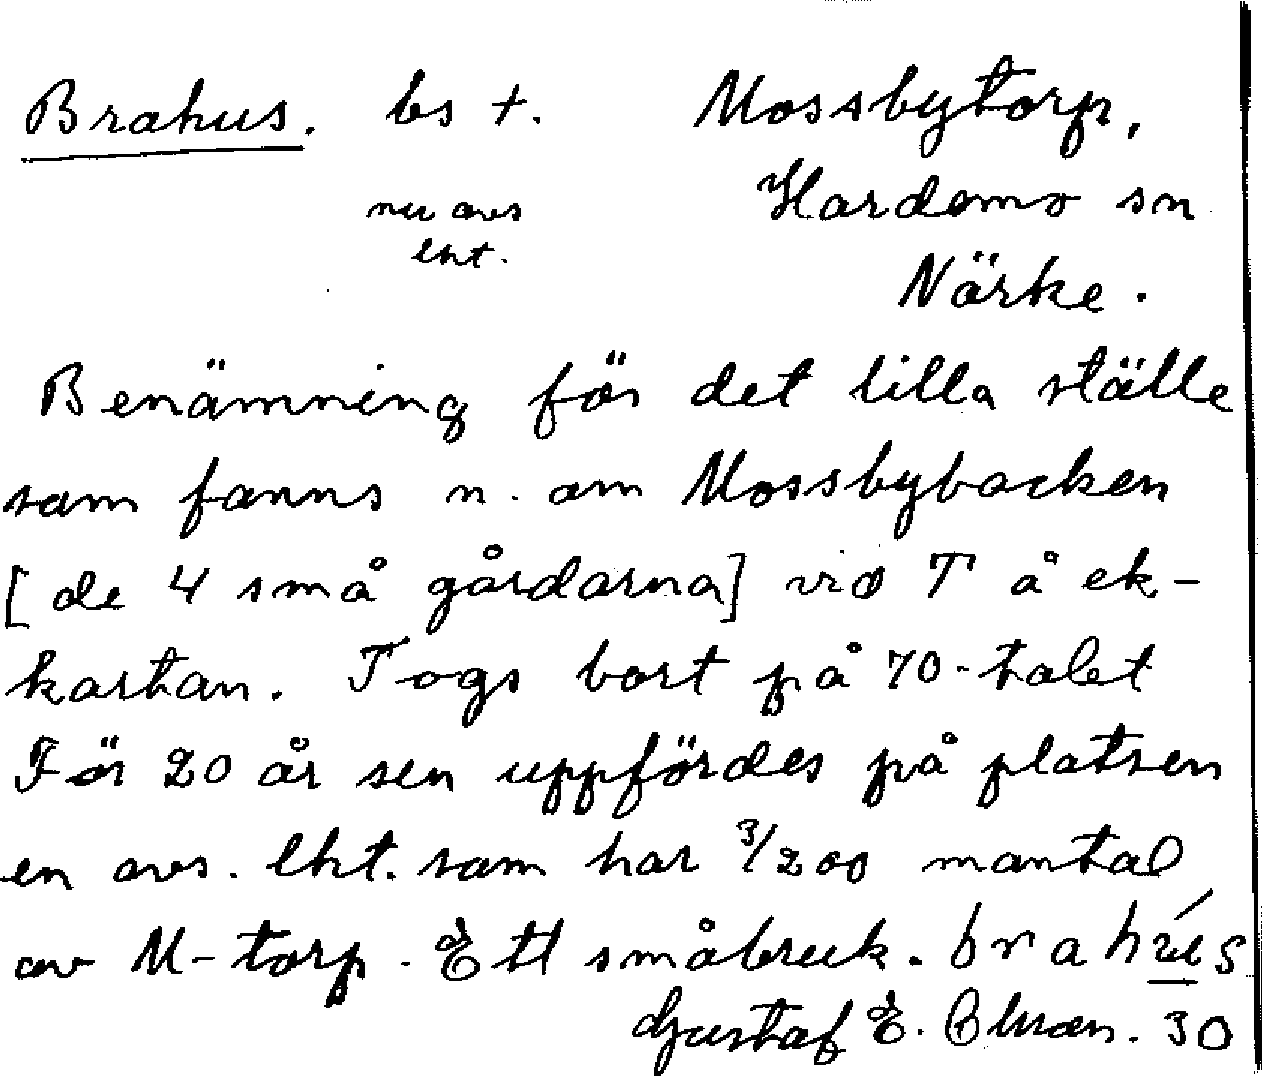 Brahus. bs †. Mossbytorp,
nu avs Hardemo sn
lht. Närke.
Benämning för det lilla ställe
som fanns n. om Mossbybacken
[de 4 små gårdarna] vid T å ek-
kartan. Togs bort på 70-talet
För 20 år sen uppfördes på platsen
en avs. lht. som har 3/200 mantal
av M-torp. Ett småbruk. brahús
Gustaf E. 30